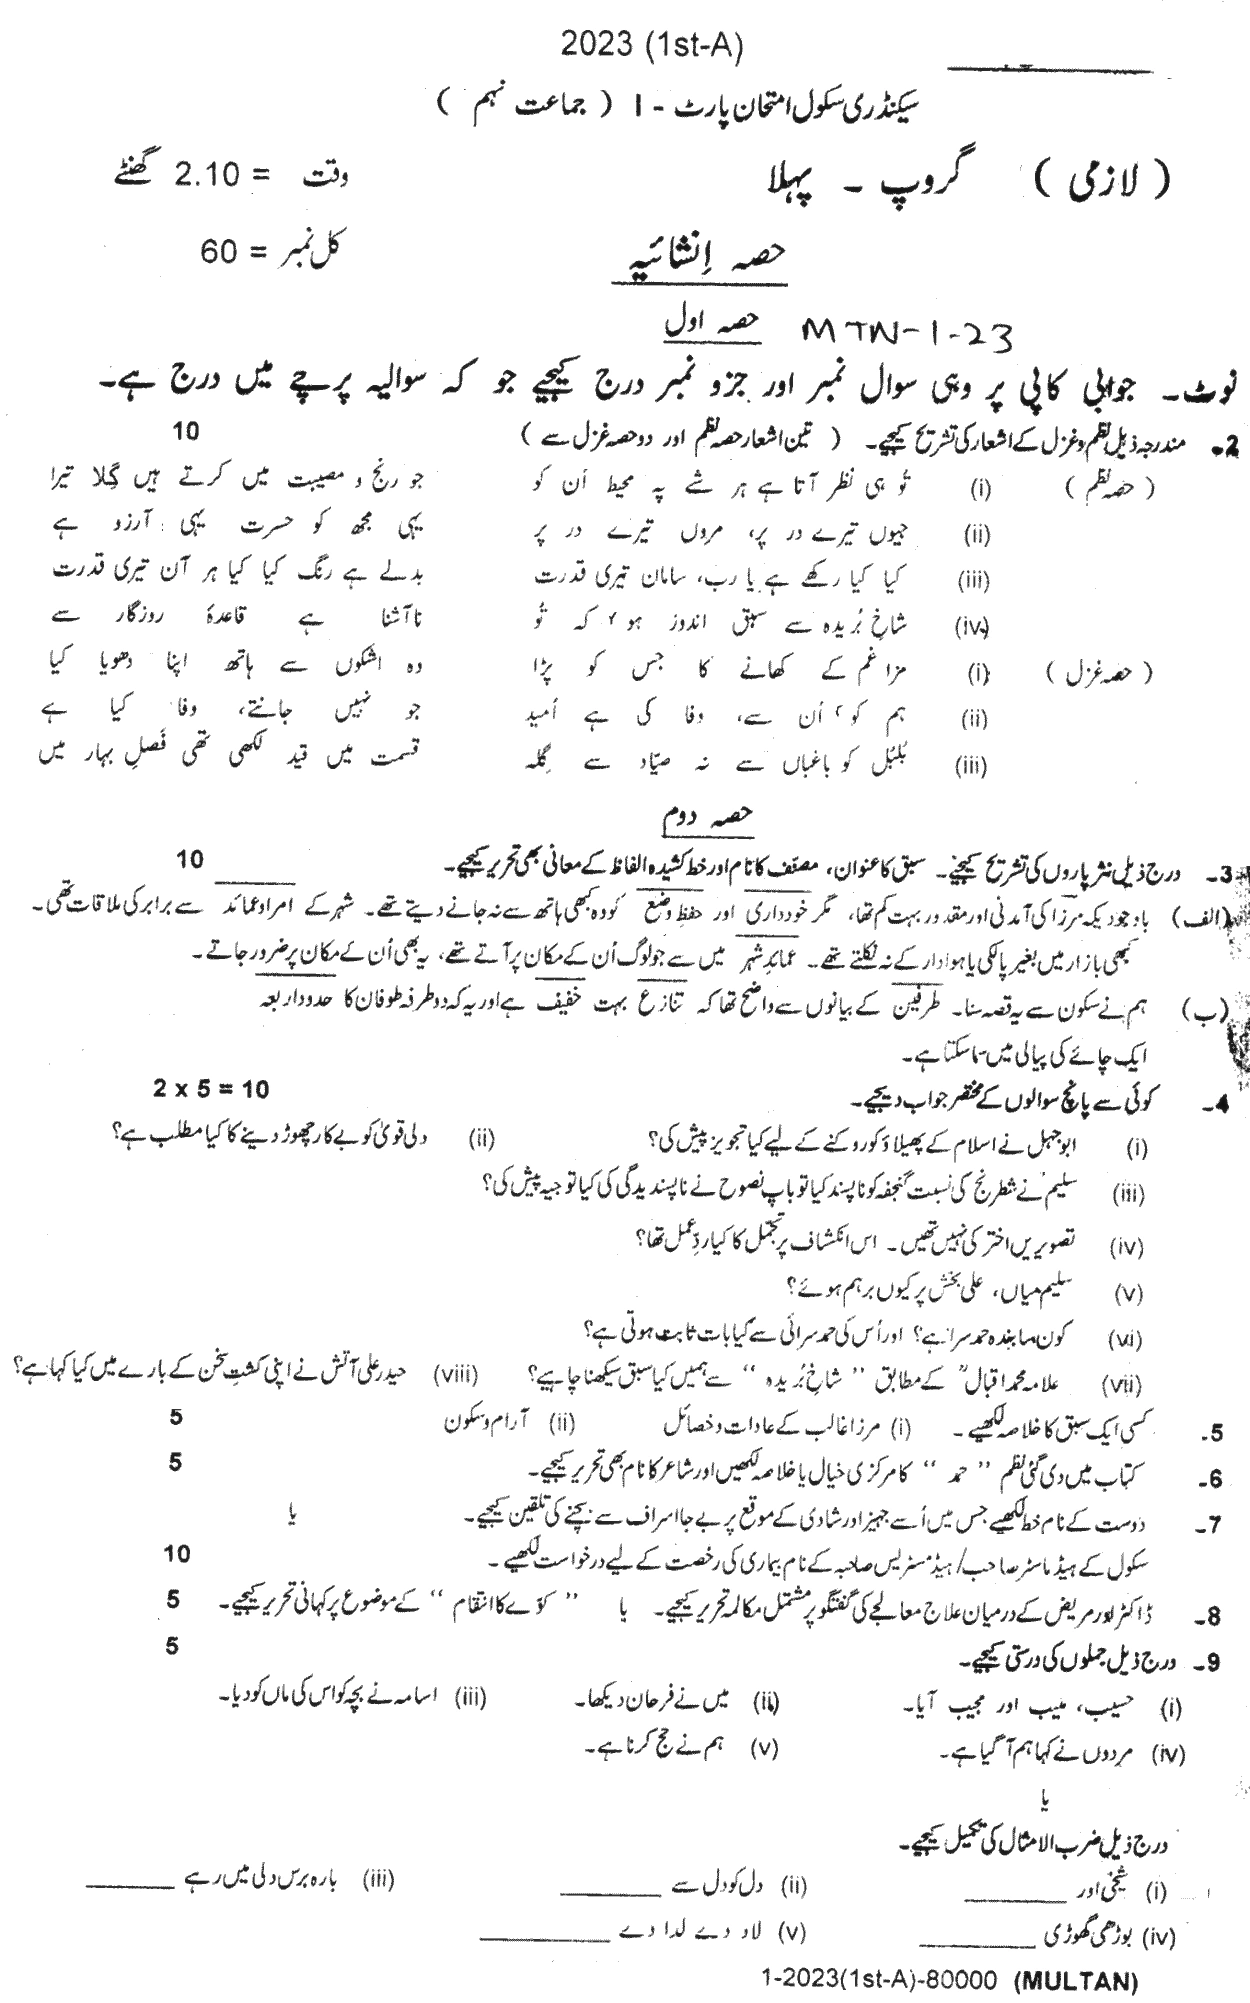 2023 (1st-A)
سیکنڈری سکول امتحان پارٹ - I ( جماعت نہم )
( لازمی ) گروپ ۔ پہلا وقت = 2.10 گھنٹے
کل نمبر = 60
حصہ اِنشائیہ
حصہ اول MTN-1-23
نوٹ۔ جوابی کاپی پر وہی سوال نمبر اور جزو نمبر درج کیجیے جو کہ سوالیہ پرچے میں درج ہے۔
2۔ مندرجہ ذیل نظم و غزل کے اشعار کی تشریح کیجیے۔ ( تین اشعار حصہ نظم اور دو حصہ غزل سے ) 10
( حصہ نظم ) (i) تُو ہی نظر آتا ہے ہر شے پہ محیط اُن کو جو رنج و مصیبت میں کرتے ہیں گِلا تیرا
(ii) جیوں تیرے در پر، مروں تیرے در پر یہی مجھ کو حسرت یہی آرزو ہے
(iii) کیا کیا رکھے ہے یا رب، سامان تیری قدرت بدلے ہے رنگ کیا کیا ہر آن تیری قدرت
(iv) شاخِ بُریدہ سے سبق اندوز ہو کہ تُو ناآشنا ہے قاعدۂ روزگار سے
( حصہ غزل ) (i) مزا غم کے کھانے کا جس کو پڑا وہ اشکوں سے ہاتھ اپنا دھویا کیا
(ii) ہم کو اُن سے، وفا کی ہے اُمید جو نہیں جانتے، وفا کیا ہے
(iii) بُلبُل کو باغباں سے نہ صیّاد سے گِلہ قسمت میں قید لکھی تھی فَصلِ بہار میں
حصہ دوم
3۔ درج ذیل نثر پاروں کی تشریح کیجیے۔ سبق کا عنوان، مصنّف کا نام اور خط کشیدہ الفاظ کے معانی بھی تحریر کیجیے۔ 10
(الف) باوجودیکہ مرزا کی آمدنی اور مقدور بہت کم تھا، مگر خودداری اور حفظِ وضع کو وہ کبھی ہاتھ سے نہ جانے دیتے تھے۔ شہر کے امراو عمائد سے برابر کی ملاقات تھی۔
کبھی بازار میں بغیر پالکی یا ہوادار کے نہ نکلتے تھے۔ عمائدِ شہر میں سے جو لوگ اُن کے مکان پر آتے تھے، یہ بھی اُن کے مکان پر ضرور جاتے۔
(ب) ہم نے سکون سے یہ قصہ سنا۔ طرفین کے بیانوں سے واضح تھا کہ تنازع بہت خفیف ہے اور یہ کہ دو طرفہ طوفان کا حدود اربعہ
ایک چائے کی پیالی میں سما سکتا ہے۔
4۔ کوئی سے پانچ سوالوں کے مختصر جواب دیجیے۔ 2 x 5 = 10
(i) ابوجہل نے اسلام کے پھیلاؤ کو روکنے کے لیے کیا تجویز پیش کی؟ (ii) دلی قویٰ کو بے کار چھوڑ دینے کا کیا مطلب ہے؟
(iii) سلیم نے شطرنج کی نسبت گنجفہ کو ناپسند کیا تو باپ نصوح نے ناپسندیدگی کی کیا توجیہ پیش کی؟
(iv) تصویریں اختر کی نہیں تھیں۔ اس انکشاف پر تجمل کا کیا ردِّعمل تھا؟
(v) سلیم میاں، علی بخش پر کیوں برہم ہوئے؟
(vi) کون سا بندہ حمد سرا ہے؟ اور اُس کی حمد سرائی سے کیا بات ثابت ہوتی ہے؟
(vii) علامہ محمد اقبالؒ کے مطابق ‘‘ شاخِ بُریدہ ’’ سے ہمیں کیا سبق سیکھنا چاہیے؟ (viii) حیدر علی آتش نے اپنی کشتِ سخن کے بارے میں کیا کہا ہے؟
5۔ کسی ایک سبق کا خلاصہ لکھیے۔ (i) مرزا غالب کے عادات و خصائل (ii) آرام و سکون 5
6۔ کتاب میں دی گئی نظم ‘‘ حمد ’’ کا مرکزی خیال یا خلاصہ لکھیں اور شاعر کا نام بھی تحریر کیجیے۔ 5
7۔ دوست کے نام خط لکھیے جس میں اُسے جہیز اور شادی کے موقع پر بے جا اسراف سے بچنے کی تلقین کیجیے۔ یا
سکول کے ہیڈ ماسٹر صاحب/ہیڈ مسٹریس صاحبہ کے نام بیماری کی رخصت کے لیے درخواست لکھیے۔ 10
8۔ ڈاکٹر اور مریض کے درمیان علاج معالجے کی گفتگو پر مشتمل مکالمہ تحریر کیجیے۔ یا ‘‘ کوّے کا انتقام ’’ کے موضوع پر کہانی تحریر کیجیے۔ 5
9۔ درج ذیل جملوں کی درستی کیجیے۔ 5
(i) حسیب، منیب اور مجیب آیا۔ (ii) میں نے فرحان دیکھا۔ (iii) اسامہ نے بچہ کو اس کی ماں کو دیا۔
(iv) مردوں نے کہا ہم آ گیا ہے۔ (v) ہم نے حج کرنا ہے۔
یا
درج ذیل ضرب الامثال کی تکمیل کیجیے۔
(i) شیخی اور ________ (ii) دل کو دل سے ________ (iii) بارہ برس دلی میں رہے ________
(iv) بوڑھی گھوڑی ________ (v) لاد دے لدا دے ________
1-2023(1st-A)-80000 (MULTAN)